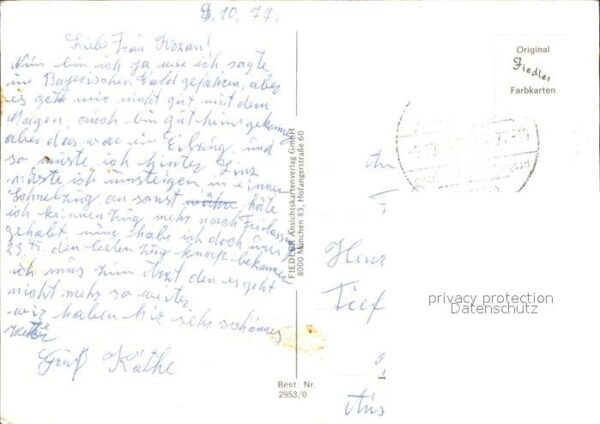 8.10.77.
Liebe Frau Kozan!
Nun bin ich ja wie ich sagte
im Bayerischen Wald gefahren, aber
es geht mir nicht gut mit dem
Magen auch bin gut hin gekommen
aber das war ein Eilzug und
so müste ich hinter Linz
müste ich umsteigen in einen
Schnelzug an sonst häte
ich keinen Zug mehr nach Freilassing
gehabt nun habe ich doch um
23 den lezten Zug knap bekommen
ich mus zum Arzt den es geht
nicht mehr so weiter
wir haben hir sehr schönnes
Wetter
Gruß Käthe
FIEDLER Ansichtskartenverlag GmbH
8000 München 83, Hofangerstraße 60
Best Nr.
2953/0
Original
Fiedler
Farbkarten
An
Herr
Tief
privacy protection
Datenschutz
Aus